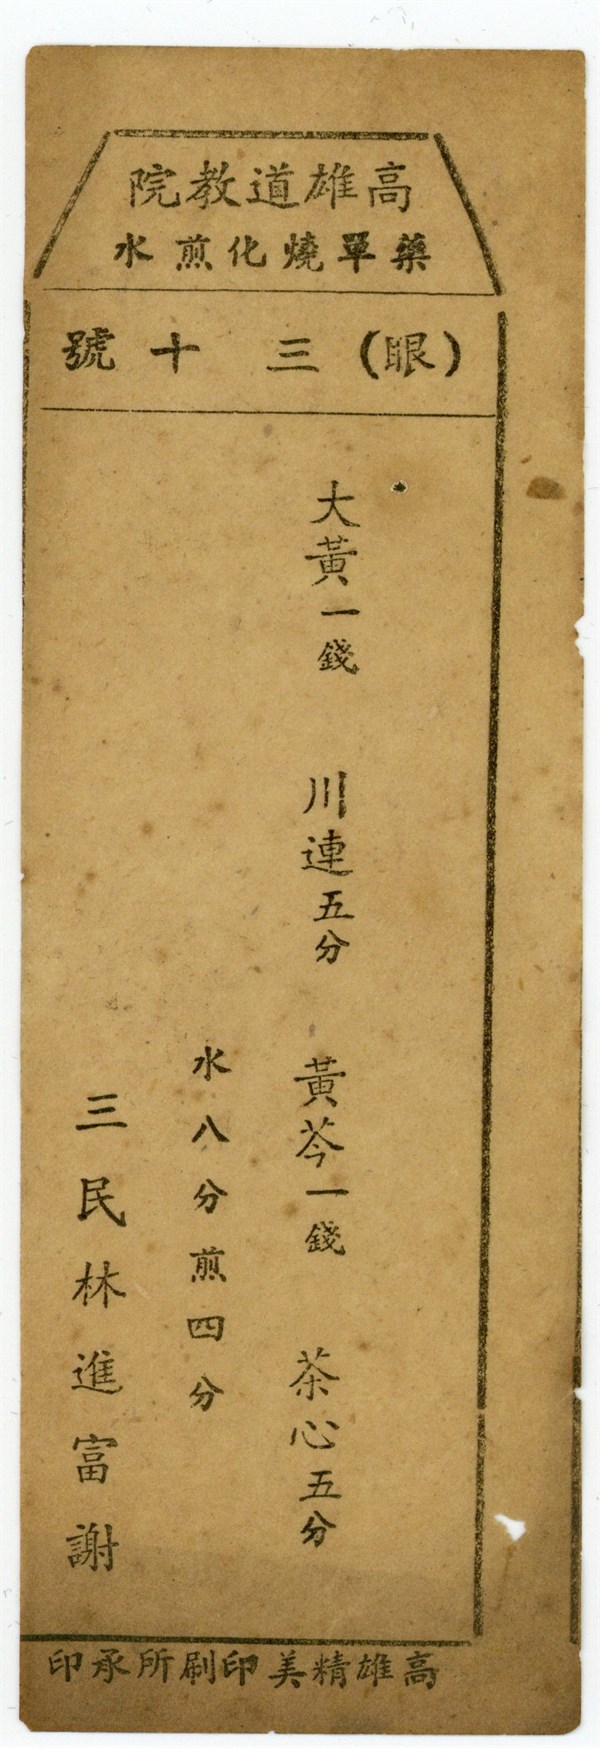 高雄道教院
藥單燒化煎水
(眼)三十號
大黃一錢 川連五分 黃芩一錢 茶心五分
水八分煎四分
三民林進富謝
高雄精美印刷所承印